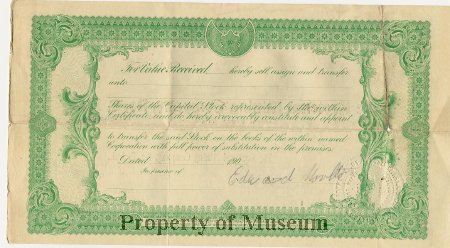 For Value Received, hereby sell, assign and transfer
unto
Shares of the Capital Stock represented by the within
Certificate, and do hereby irrevocably constitute and appoint
to transfer the said Stock on the books of the within named
Corporation with full power of substitution in the premises.
Dated 190
In presence of
Edward
Property of Museum